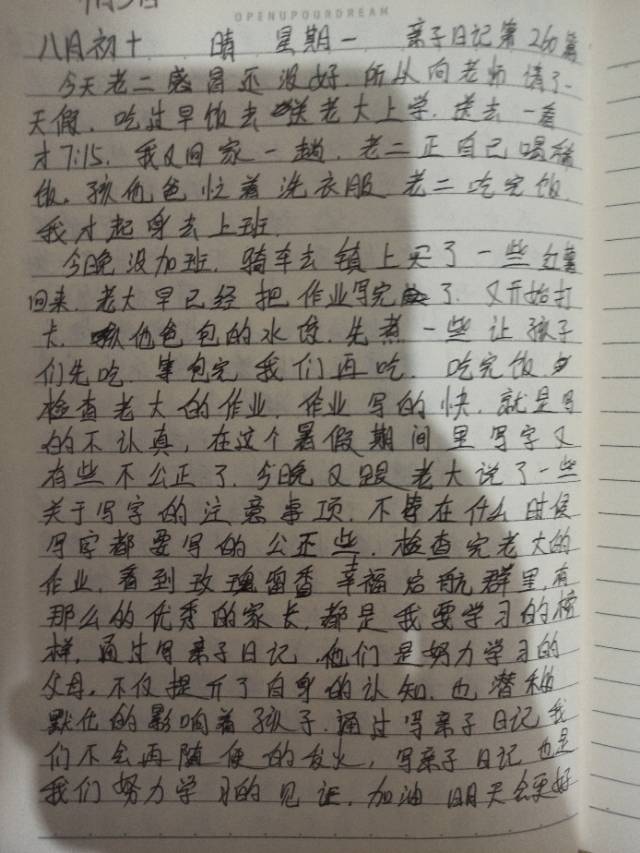 9月5日
OPENUPOURDREAM
八月初十 晴 星期一 亲子日记第260篇
今天老二感冒还没好.所以向老师请了一
天假.吃过早饭去送老大上学.送去一看
才7:15.我又回家一趟.老二正自己喝稀
饭.孩他爸忙着洗衣服.老二吃完饭.
我才起身去上班.
今晚没加班.骑车去镇上买了一些红薯
回来.老大早已经把作业写完了.又开始打
孩他爸包的水饺.先煮一些让孩子
们先吃.等包完我们再吃.吃完饭
检查老大的作业.作业写的快.就是写
的不认真,在这个暑假期间里写字又
有些不公正了.今晚又跟老大说了一些
关于写字的注意事项.不管在什么时候
写字都要写的公正些.检查完老大的
作业.看到玫瑰留香幸福启航群里,有
那么的优秀的家长.都是我要学习的榜
样.通过写亲子日记.他们是努力学习的
父母.不仅提升了自身的认知.也潜移
默化的影响着孩子.通过写亲子日记我
们不会再随便的发火,写亲子日记也是
我们努力学习的见证.加油 明天会更好